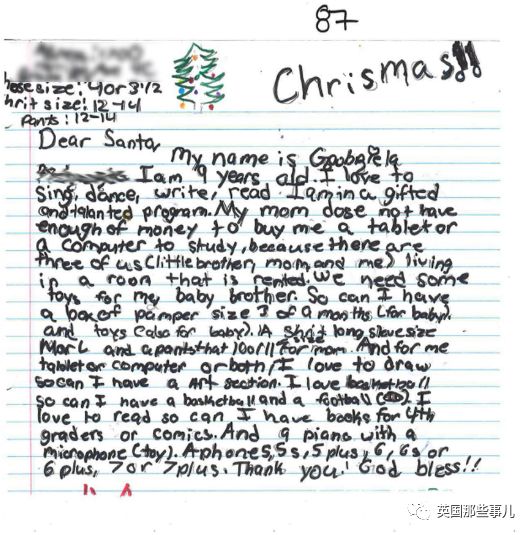 87
Chrismas!!
hose size: 4 or 3 1/2
hrit size: 12-14
Pants: 12-14
Dear Santa,
My name is Goobariela
I am 9 years old. I love to
sing, dance, write, read. I am in a gifted
and talanted program. My mom dose not have
enough of money to buy me a tablet or
a computer to study, because there are
three of us (little brother, mom, and me) living
in a roon that is rented. We need some
toys for my baby brother. So can I have
a box of pamper size 3 of 9 months (for baby).
and toys (also for baby). A shirt long slave size
M or L and a pants that 10 or 11 size for mom. And for me
tablet or computer or both, I love to draw
so can I have a Art section. I love basketball
so can I have a basketball and a football. I
love to read so can I have books for 4th
graders or comics. And a piano with a
microphone (toy). A phone 5, 5s, 5 plus, 6, 6s or
6 plus, 7 or 7 plus. Thank you! God bless!!
英国那些事儿